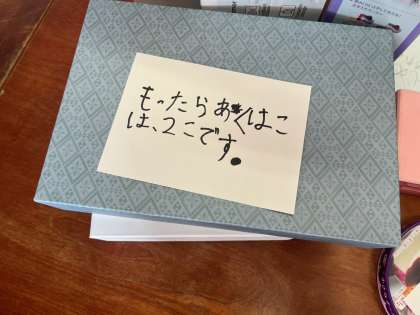 もったらあくはこ
は、2こです。